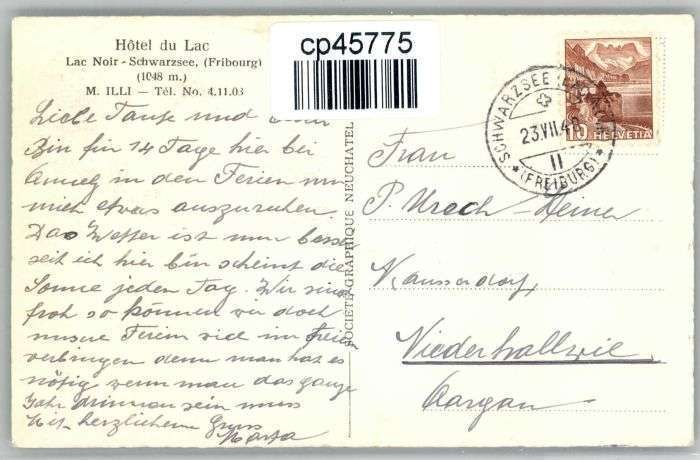 Hôtel du Lac
Lac Noir - Schwarzsee, (Fribourg)
(1048 m.)
M. ILLI — Tél. No. 4.11.03
cp45775
Liebe Tante und
Bin für 14 Tage hier bei
in den Ferien um
mich etwas auszuruhen.
Das Wetter ist nun besser
seit ich hier bin scheint die
Sonne jeden Tag. Wir sind
froh so können wir doch
unsere Ferien viel im Freien
verbringen denn man hat es
nötig wenn man das ganze
Jahr drinnen sein muss
Mit herzlichem Gruss
SOCIÉTÉ GRAPHIQUE NEUCHATEL
SCHWARZSEE
23.VII.4
11
(FREIBURG)
15
HELVETIA
Frau
P. Urech-
Niederhallwil
Aargau